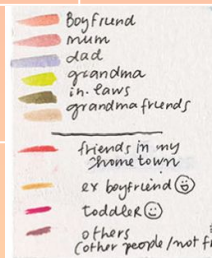 Boyfriend
mum
dad
grandma
in.laws
grandmafriends
friends in my
hometown
ex boyfriend
toddler
others
(other people/not